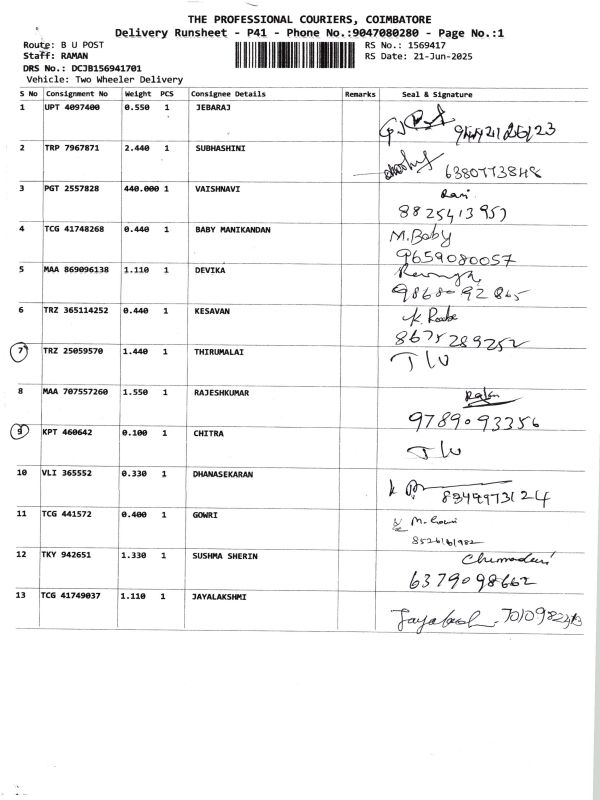 THE PROFESSIONAL COURIERS, COIMBATORE
Delivery Runsheet - P41 - Phone No.:9047080280 - Page No.:1
Route: B U POST RS No.: 1569417
Staff: RAMAN RS Date: 21-Jun-2025
DRS No.: DCJB156941701
Vehicle: Two Wheeler Delivery
S No Consignment No Weight PCS Consignee Details Remarks Seal & Signature
1 UPT 4097400 0.550 1 JEBARAJ
2 TRP 7967871 2.440 1 SUBHASHINI
6380773848
3 PGT 2557828 440.000 1 VAISHNAVI Ravi
8825413957
4 TCG 41748268 0.440 1 BABY MANIKANDAN M. Baby
9659080057
5 MAA 869096138 1.110 1 DEVIKA
6 TRZ 365114252 0.440 1 KESAVAN
8675289252
7 TRZ 25059570 1.440 1 THIRUMALAI
8 MAA 707557260 1.550 1 RAJESHKUMAR
9789093356
9 KPT 460642 0.100 1 CHITRA
10 VLI 365552 0.330 1 DHANASEKARAN
11 TCG 441572 0.400 1 GOWRI
12 TKY 942651 1.330 1 SUSHMA SHERIN
6379098662
13 TCG 41749037 1.110 1 JAYALAKSHMI